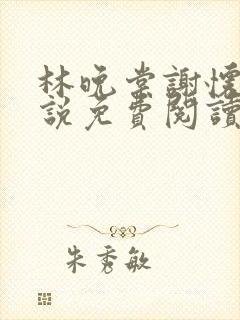 林晚棠謝懷
說免費閱讀
朱秀敏